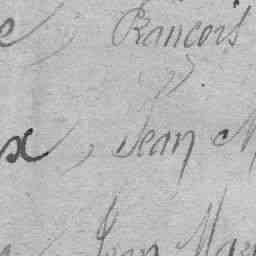 e, François
x, Jean M
Jean Mar